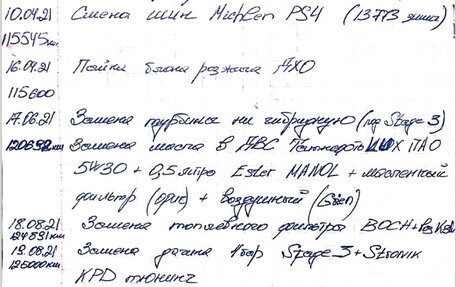 10.04.21 Смена шин Michlen PS4 (13773 зима)
115545км
16.04.21 Пайка блока розжига AXO
115600
17.06.21 Замена турбины на гибридную (под Stage 3)
120692км Замена масла в ABC
5W30 + 0,5 литро Ester MANOL + масленный
фильтр (ориг) + воздушный (Goen)
18.08.21 Замена топлевного фильтра BOCH +
124891км
19.08.21 Замена дачика 4бар Stage 3 + Stronik
125000км
KPD тюнинг